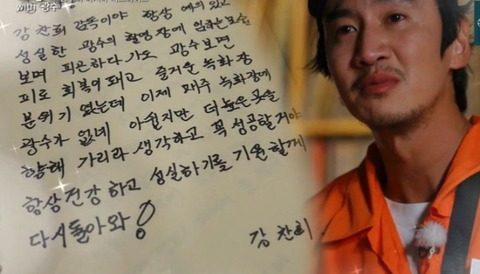 강찬희 감독이야 항상 예의 있고
성실한 광수의 촬영장에 임하는 모습
보며 피곤하다가도 광수보면
피로 회복이 돼고 즐거운 녹화장
분위기 였는데 이제 매주 녹화장에
광수가 없네 아쉽지만 더 높은 곳을
향해 가리라 생각하고 꼭 성공할거야
항상 건강하고 성실하기를 기원할게
다시 돌아와!
강찬희